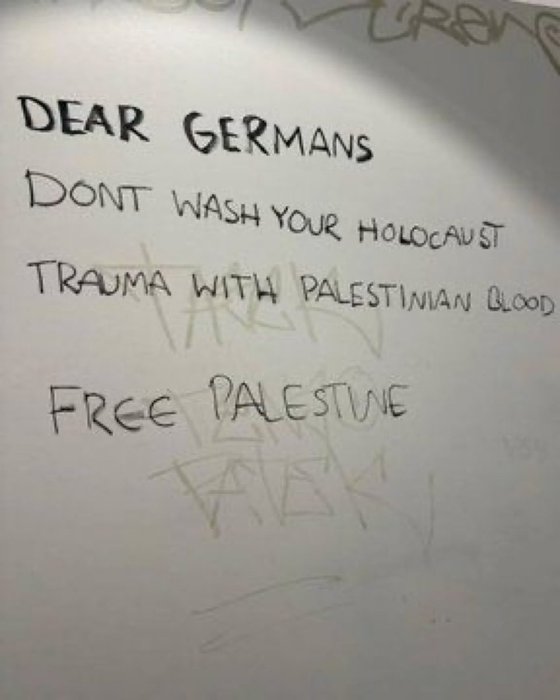 DEAR GERMANS
DONT WASH YOUR HOLOCAUST
TRAUMA WITH PALESTINIAN BLOOD
FREE PALESTINE